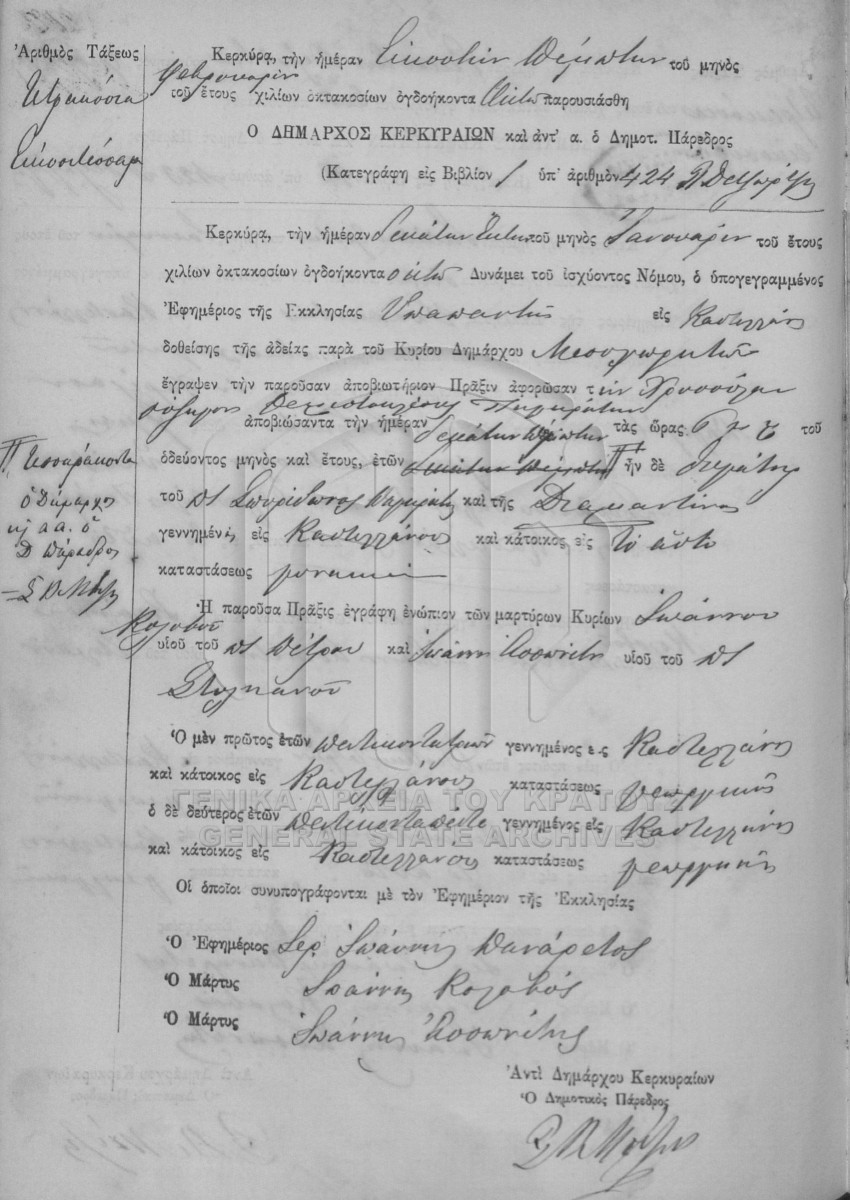 Ἀριθμὸς Τάξεως
Τετρακόσια
Εἰκοσιτέσσαρα
Κερκύρᾳ, τὴν ἡμέραν Εἰκοστὴν Πέμπτην τοῦ μηνὸς
Φεβρουαρίου
τοῦ ἔτους χιλίων ὀκτακοσίων ὀγδοήκοντα Ὀκτὼ παρουσιάσθη
Ὁ ΔΗΜΑΡΧΟΣ ΚΕΡΚΥΡΑΙΩΝ καὶ ἀντ' α. ὁ Δημοτ. Πάρεδρος
(Κατεγράφη εἰς Βιβλίον 1 ὑπ' ἀριθμὸν 424
Κερκύρᾳ, τὴν ἡμέραν δεκάτην ἕκτην τοῦ μηνὸς Ἰανουαρίου τοῦ ἔτους
χιλίων ὀκτακοσίων ὀγδοήκοντα ὀκτὼ Δυνάμει τοῦ ἰσχύοντος Νόμου, ὁ ὑπογεγραμμένος
Ἐφημέριος τῆς Εκκλησίας Ὑπαπαντῆς εἰς Καστελλάνους
δοθείσης τῆς ἀδείας παρὰ τοῦ Κυρίου Δημάρχου Μεσογγωρητῶν
ἔγραψεν τὴν παροῦσαν ἀποβιωτήριον Πρᾶξιν ἀφορῶσαν τὴν Χρυσούλαν
σύζυγον Θεμιστοκλέους
ἀποβιώσαντα τὴν ἡμέραν δεκάτην πέμπτην τὰς ὥρας 6 π. μ. τοῦ
ὁδεύοντος μηνὸς καὶ ἔτους, ἐτῶν δεκάτην πέμπτην ἦν δὲ θυγάτηρ
τοῦ πτ Σπυρίδωνος καὶ τῆς Διαμαντίνας
γεννημένη εἰς Καστελλάνους καὶ κάτοικος εἰς Τὸ αὐτὸ
καταστάσεως
Τεσσαράκοντα
ὁ Δήμαρχος
κ α.α. ὁ
Δ Πάρεδρος
Ἡ παροῦσα Πρᾶξις ἐγράφη ἐνώπιον τῶν μαρτύρων Κυρίων Ἰωάννου
Κολοβοῦ
υἱοῦ τοῦ πτ Πέτρου καὶ Ἰωάννη Ἀσπωνίτη υἱοῦ τοῦ πτ
Στυλιανοῦ
Ὁ μὲν πρῶτος ἐτῶν πεντηκοντατριῶν γεννημένος εις Καστελλάνους
καὶ κάτοικος εἰς Καστελλάνους καταστάσεως γεωργικῆς
ὁ δὲ δεύτερος ἐτῶν πεντήκοντα πέντε γεννημένος εἰς Καστελλάνους
καὶ κάτοικος εἰς Καστελλάνους καταστάσεως γεωργικῆς
Οἱ ὁποῖοι συνυπογράφονται μὲ τὸν Ἐφημέριον τῆς Ἐκκλησίας
Ὁ Ἐφημέριος Ἱερ. Ἰωάννης Πανάρετος
Ὁ Μάρτυς Ἰωάννης Κολοβός
Ὁ Μάρτυς Ἰωάννης Ἀσπωνίτης
Ἀντὶ Δημάρχου Κερκυραίων
Ὁ Δημοτικὸς Πάρεδρος
ΓΕΝΙΚΑ ΑΡΧΕΙΑ ΤΟΥ ΚΡΑΤΟΥΣ
GENERAL STATE ARCHIVES